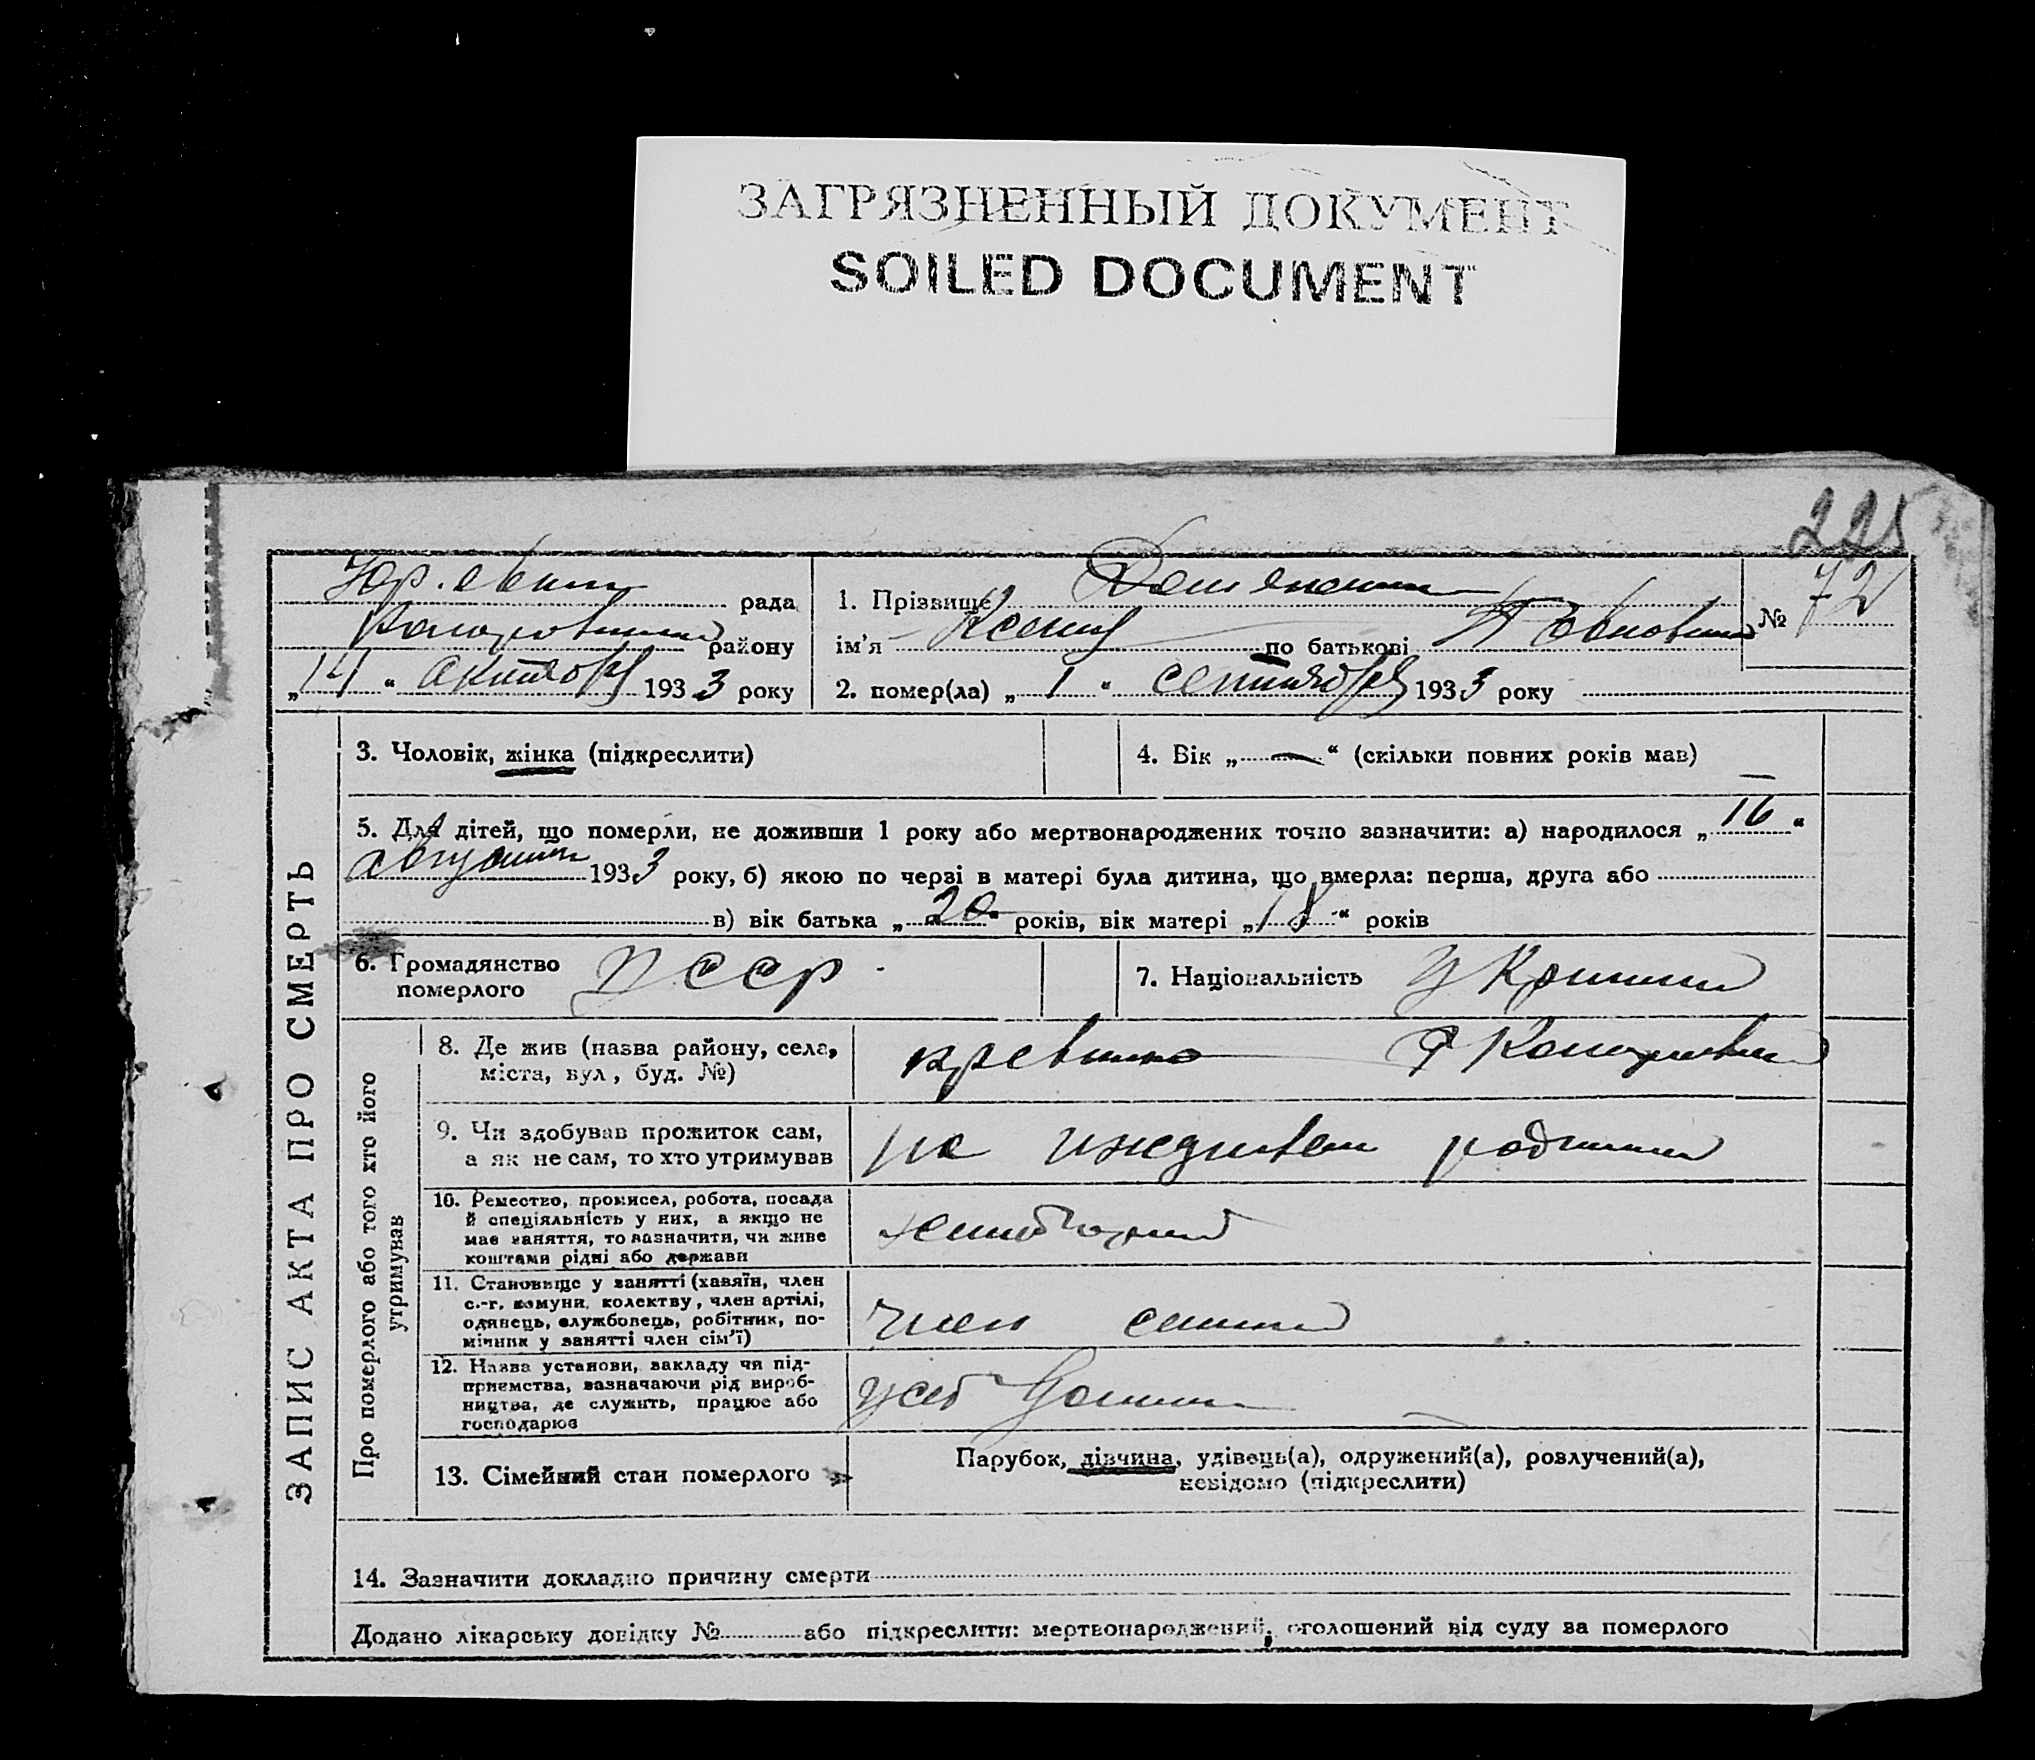 ЗАГРЯЗНЕННЫЙ ДОКУМЕНТ
SOILED DOCUMENT
225
рада
району
„14“ октября 1933 року
1. Прізвище
ім'я Ксения по батькові
№ 72
2. помер(ла) „1“ сентября 1933 року
ЗАПИС АКТА ПРО СМЕРТЬ
3. Чоловік, жінка (підкреслити)
4. Вік „—“ (скільки повних років мав)
5. Для дітей, що померли, не доживши 1 року або мертвонароджених точно зазначити: а) народилося „16“
августа 1933 року, б) якою по черзі в матері була дитина, що вмерла: перша, друга або
в) вік батька „20“ років, вік матері „18“ років
6. Громадянство
померлого
УССР
7. Національність
Про померлого або того хто його
утримував
8. Де жив (назва району, села,
міста, вул, буд. №)
9. Чи здобував прожиток сам,
а як не сам, то хто утримував
на иждивении родителей
10. Ремество, промисел, робота, посада
й спеціяльність у них, а якщо не
має заняття, то зазначити, чи живе
коштами рідні або держави
11. Становище у занятті (хазяїн, член
с.-г. комуни, колективу, член артілі,
одинець, службовець, робітник, по-
мічник у занятті член сім'ї)
член семьи
12. Назва установи, закладу чи під-
приємства, зазначаючи рід вироб-
ництва, де служить, працює або
господарює
13. Сімейний стан померлого
Парубок, дівчина, удівець(а), одружений(а), розлучений(а),
невідомо (підкреслити)
14. Зазначити докладно причину смерти
Додано лікарську довідку № або підкреслити: мертвонароджений, оголошений від суду за померлого